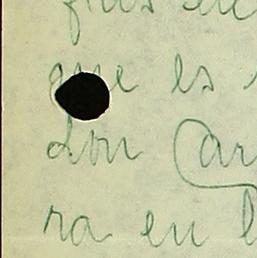 que es
Don Car
ra en l